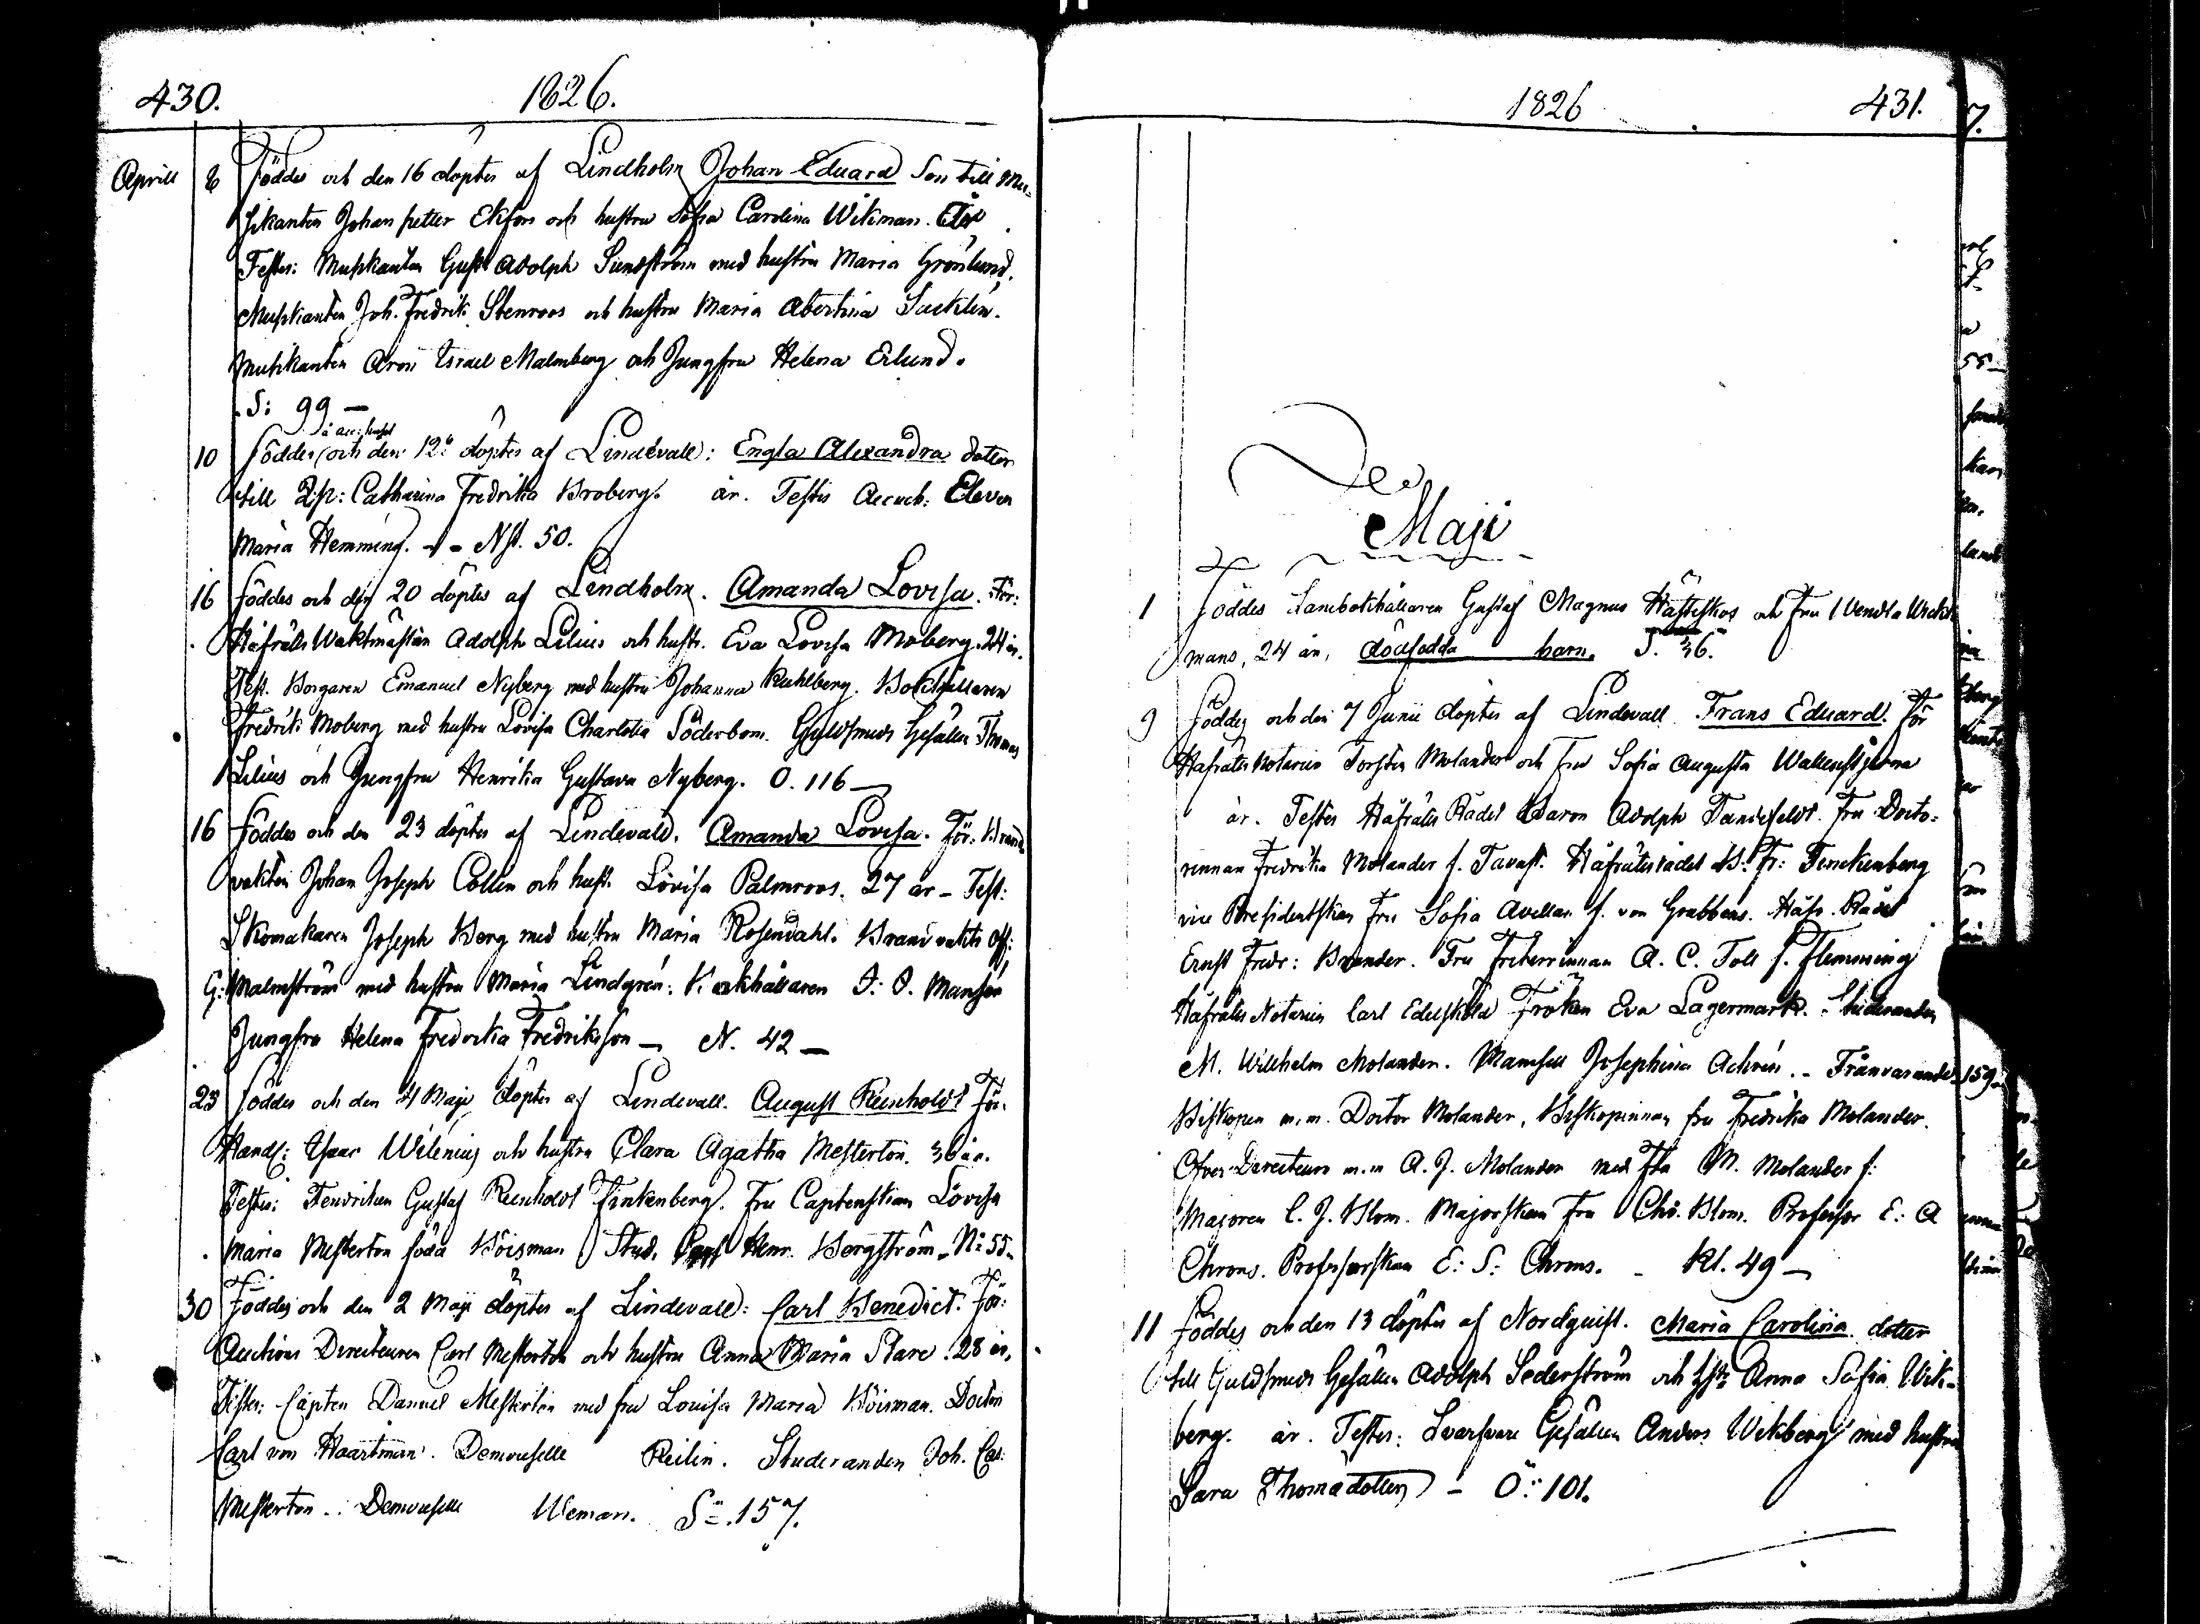 430. 1826.
Aprill 8 Föddes och den 16 döptes af Lindholm Johan Eduard Son till Mu-
sikanten Johan petter Ekfors och hustru Sofia Carolina Wikman.
Testes: Musikanten Gust Adolph Sundström med hustru Maria Grönlund.
Musikanten Joh. Fredrik Stenroos och hustru Maria Abertina Sacklén.
Musikanten Aron Israel Malmberg och Jungfru Helena Erlund.
S: 99 —
10 Föddes å acc: huset och den 12 döptes af Lindevall: Engla Alexandra dotter
till Q:p: Catharina Fredrika Broberg. år. Testis Accuch: Eleven
Maria Hemming. - - Nst. 50.
16 Föddes och den 20 döptes af Lindholm. Amanda Lovisa. För:
Håfrätts Waktmästaren Adolph Lilius och hustr. Eva Lovisa Moberg. 24 år.
Test. Borgaren Emanuel Nyberg med hustru Johanna Kuhlberg. Bokhållaren
Fredrik Moberg med hustru Lovisa Charlotta Söderbom. Guldsmeds Gesällen Thomas
Lilius och Jungfru Henrika Gustava Nyberg. O. 116 —
16 Föddes och den 23 döptes af Lindevall. Amanda Lovisa. För: Brand
vakten Johan Joseph Collin och hust. Lovisa Palmroos. 27 år - Test:
Skomakaren Joseph Berg med hustru Maria Rosendahl. Brandvakts off:
G: Malmström med hustru Maria Lindgrén. Bokhållaren J. O. Mansén
Jungfru Helena Fredrika Fredriksson — N. 42 —
23 Föddes och den 4 Maji döptes af Lindevall. August Reinholdt För.
Handl: Isaac Wilenius och hustru Clara Agatha Mesterton. 36 år.
Testes: Fendriken Gustaf Reinholdt Finkenberg. Fru Captenskan Lovisa
Maria Mesterton föda Böisman Stud. Henr. Bergström - N: 55.
30 Föddes och den 2 Maji döptes af Lindevall: Carl Benedict. För:
Auctions Directeuren Carl Mesterton och hustru Anna Maria Stare. 28 år.
Testes: Capten Daniel Mesterton med fru Lovisa Maria Böisman. Doctor
Carl von Haartman. Demoiselle Reilin. Studeranden Joh. Car:
Mesterton.. Demoiselle Weman. S: 157.
1826 431.
Maji
1 Föddes Lands bokhållaren Gustaf Magnus Hästeskos och Fru Wendla Wick-
mans, 24 år, dödfödda barn. S. 36.
9 Föddes och den 7 Junii döptes af Lindevall Frans Eduard. För
Håfrätts Notarien Torsten Molander och Fru Sofia Augusta Wallenstjerna
år. Testes Håfrätts Rådet Baron Adolph Tandefeldt. Fru Docto-
rinnan Fredrika Molander f. Tavast. Håfrättsrådet B. Fr: Finckenberg
vice Presidentskan Fru Sofia Avellan f. von Grabbens. Håfr. Rådet
Ernst Fredr: Brander. Fru Friherrinnan A. C. Toll f. Flemming
Håfrätts Notarien Carl Edelsköld Fröken Eva Lagermark. Studeranden
M. Wilhelm Molander. Mamsell Josephina Achrén. - Frånvarande
Biskopen m.m. Doctor Molander, Biskopinnan fru Fredrika Molander.
Öfver Directeuren m.m A. J. Molander med Fru M. Molander f:
Majoren C. J. Blom. Majorskan Fru Blom. Professor E: A
Chrons. Professorskan E: S: Chrons. - Kl. 49 —
11 Föddes och den 13 döptes af Nordquist. Maria Carolina dotter
till Guldsmeds Gesällen Adolph Sederström och hstr Anna Sofia Wik-
berg. år. Testes: Svarfvare Gesällen Anders Wikberg med hustru
Sara Thomædotter - Ö: 101.
7.
55
159